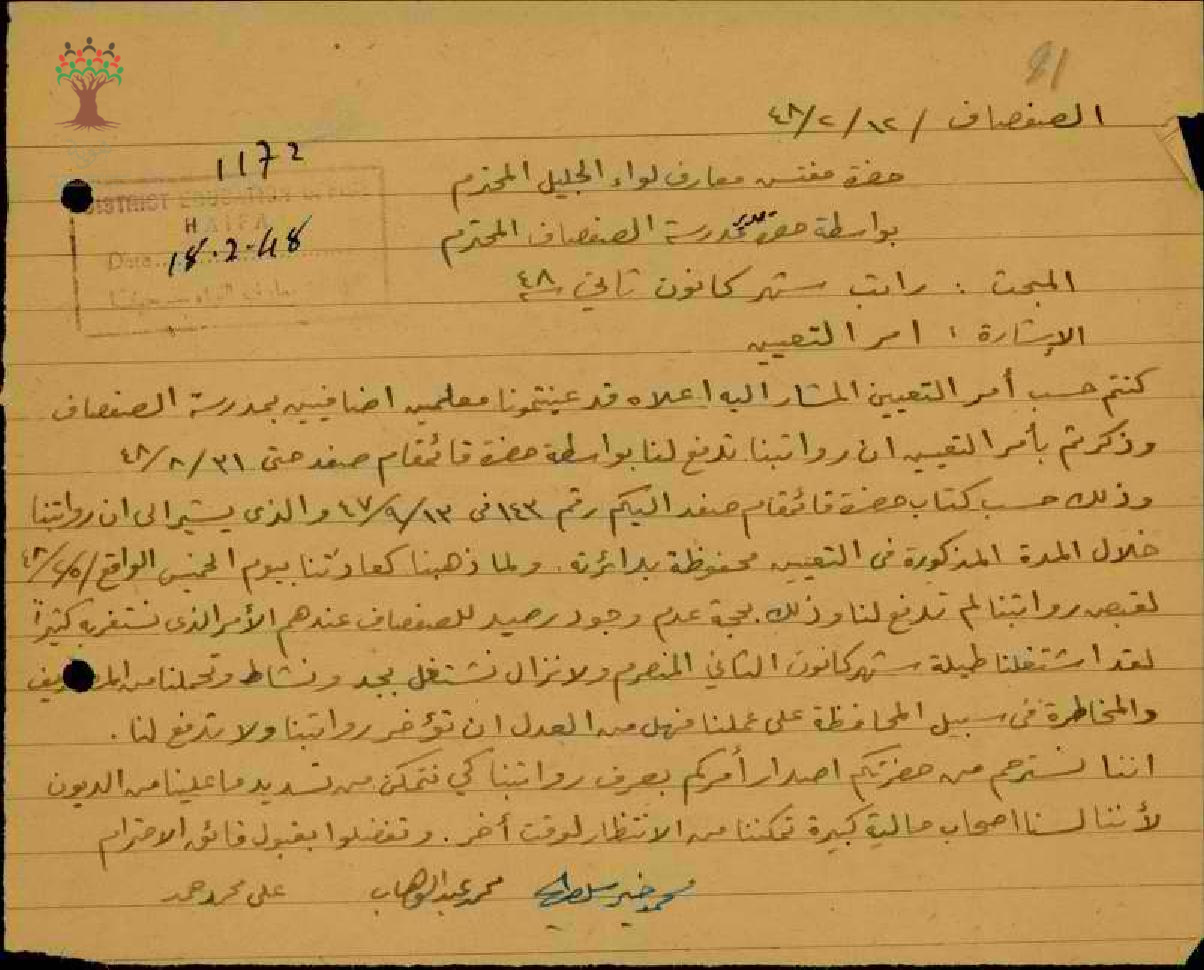 81
الصفصاف / ١٢/ ٢/ ٤٨
1172
DISTRICT EDUCATION OFFICE
HAIFA
Date 18.2.48
حضرة مفتش معارف لواء الجليل المحترم
بواسطة حضرة مدير مدرسة الصفصاف المحترم
المبحث : راتب شهر كانون ثاني سنة ٤٨
الإشارة : امر التعيين
كنتم حسب أمر التعيين المشار اليه اعلاه قد عينتمونا معلمين اضافيين بمدرسة الصفصاف
وذكرتم بأمر التعيين ان رواتبنا تدفع لنا بواسطة حضرة قائمقام صفد حتى ٣١/ ٨/ ٤٨
وذلك حسب كتاب حضرة قائمقام صفد اليكم رقم ١٤٣ في ١٣/ ٩/ ٤٧ والذي يشير الى ان رواتبنا
خلال المدة المذكورة في التعيين محفوظة بدائرته. ولما ذهبنا كعادتنا بيوم الخميس الواقع ٥/ ٢/ ٤٨
لقبض رواتبنا لم تدفع لنا وذلك بحجة عدم وجود رصيد للصفصاف عندهم الأمر الذي نستغربه كثيراً
لقد اشتغلنا طيلة شهر كانون الثاني المنصرم ولا نزال نشتغل بجد ونشاط وتحملنا من
والمخاطرة في سبيل المحافظة على عملنا فهل من العدل ان تؤخر رواتبنا ولا تدفع لنا .
اننا نسترحم من حضرتكم اصدار أمركم بصرف رواتبنا كي نتمكن من تسديد ما علينا من الديون
لأننا لسنا اصحاب مالية كبيرة تمكننا من الانتظار لوقت أخر. وتفضلوا بقبول فائق الاحترام
محمد خير محمد عبد الوهاب علي محمد حمد